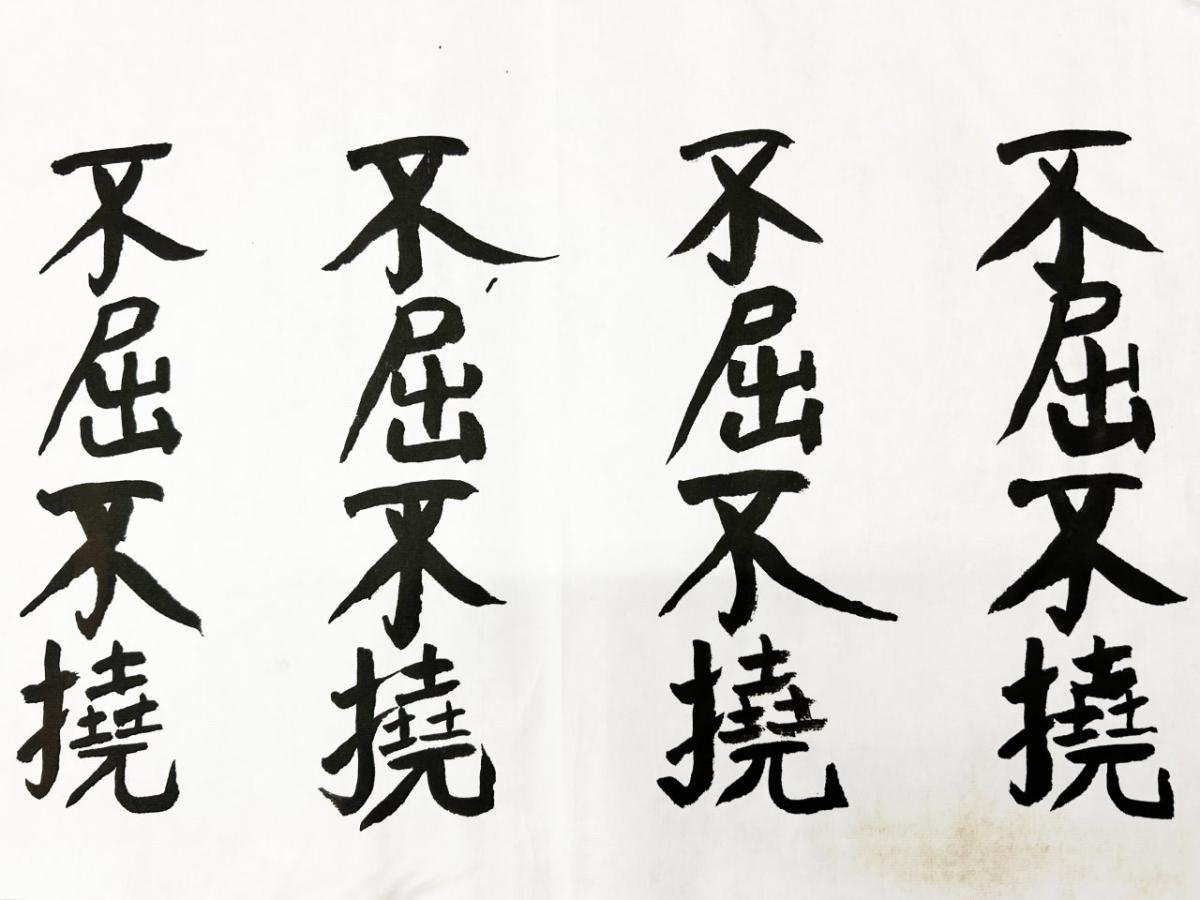 不屈不撓
不屈不撓
不屈不撓
不屈不撓